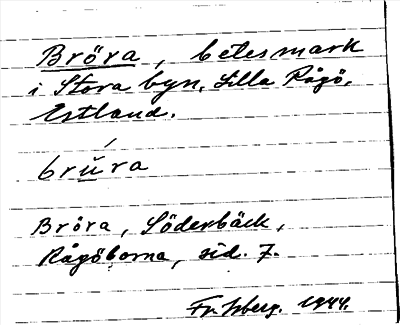 Bröra, betesmark
i Stora byn, Lilla Rågö,
Estland.
brŭ́ra
Bröra, Söderbäck,
Rågöborna, sid. 7.
1944.